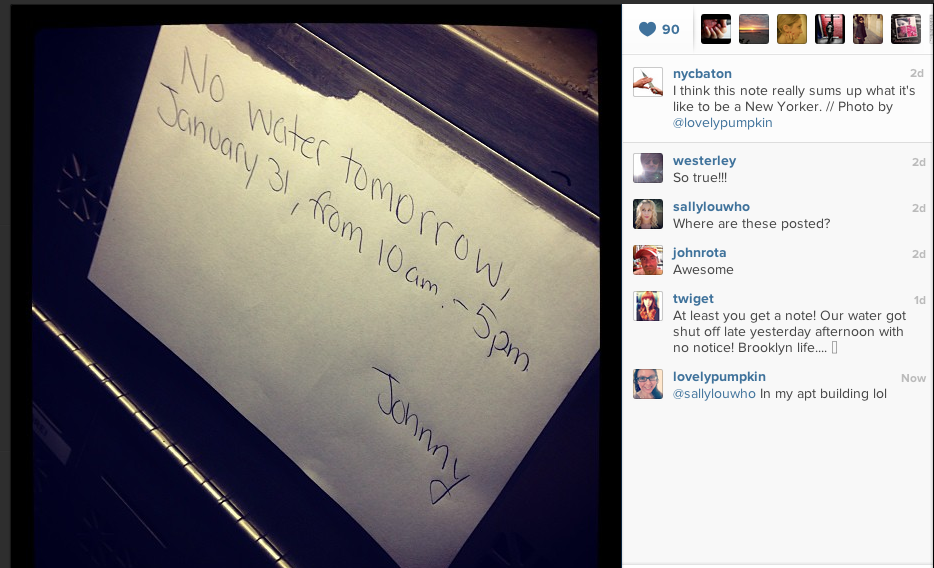 No water tomorrow,
January 31, from 10am. - 5pm
Johnny
90
nycbaton
2d
I think this note really sums up what it's
like to be a New Yorker. // Photo by
@lovelypumpkin
westerley
2d
So true!!!
sallylouwho
2d
Where are these posted?
johnrota
2d
Awesome
twiget
1d
At least you get a note! Our water got
shut off late yesterday afternoon with
no notice! Brooklyn life....
lovelypumpkin
Now
@sallylouwho In my apt building lol